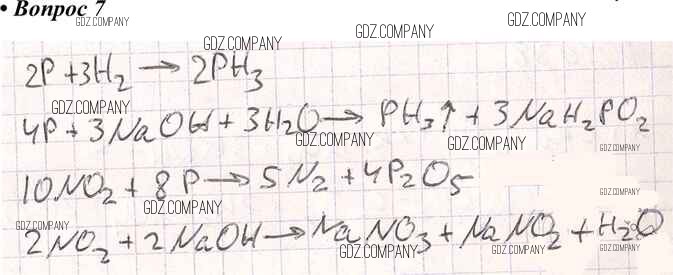 • Вопрос 7
GDZ.COMPANY GDZ.COMPANY
GDZ.COMPANY
2P + 3H₂ → 2PH₃
GDZ.COMPANY
4P + 3NaOH + 3H₂O → PH₃↑ + 3NaH₂PO₂
GDZ.COMPANY GDZ.COMPANY GDZ.COMPANY
10NO₂ + 8P → 5N₂ + 4P₂O₅
GDZ.COMPANY GDZ.COMPANY
GDZ.COMPANY
2NO₂ + 2NaOH → NaNO₃ + NaNO₂ + H₂O
GDZ.COMPANY GDZ.COMPANY GDZ.COMPANY